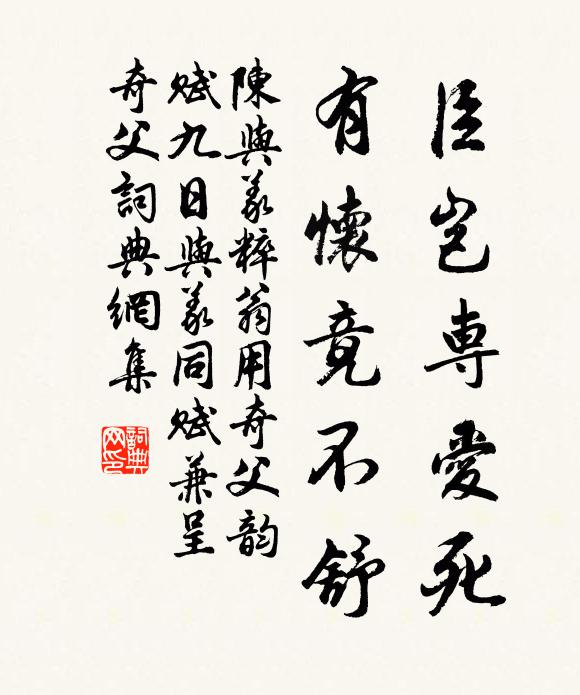 臣豈專愛死
有懷竟不舒
陳與義粹翁用奇父韵
賦九日與義同賦兼呈
奇父詞典網集
詞典网印